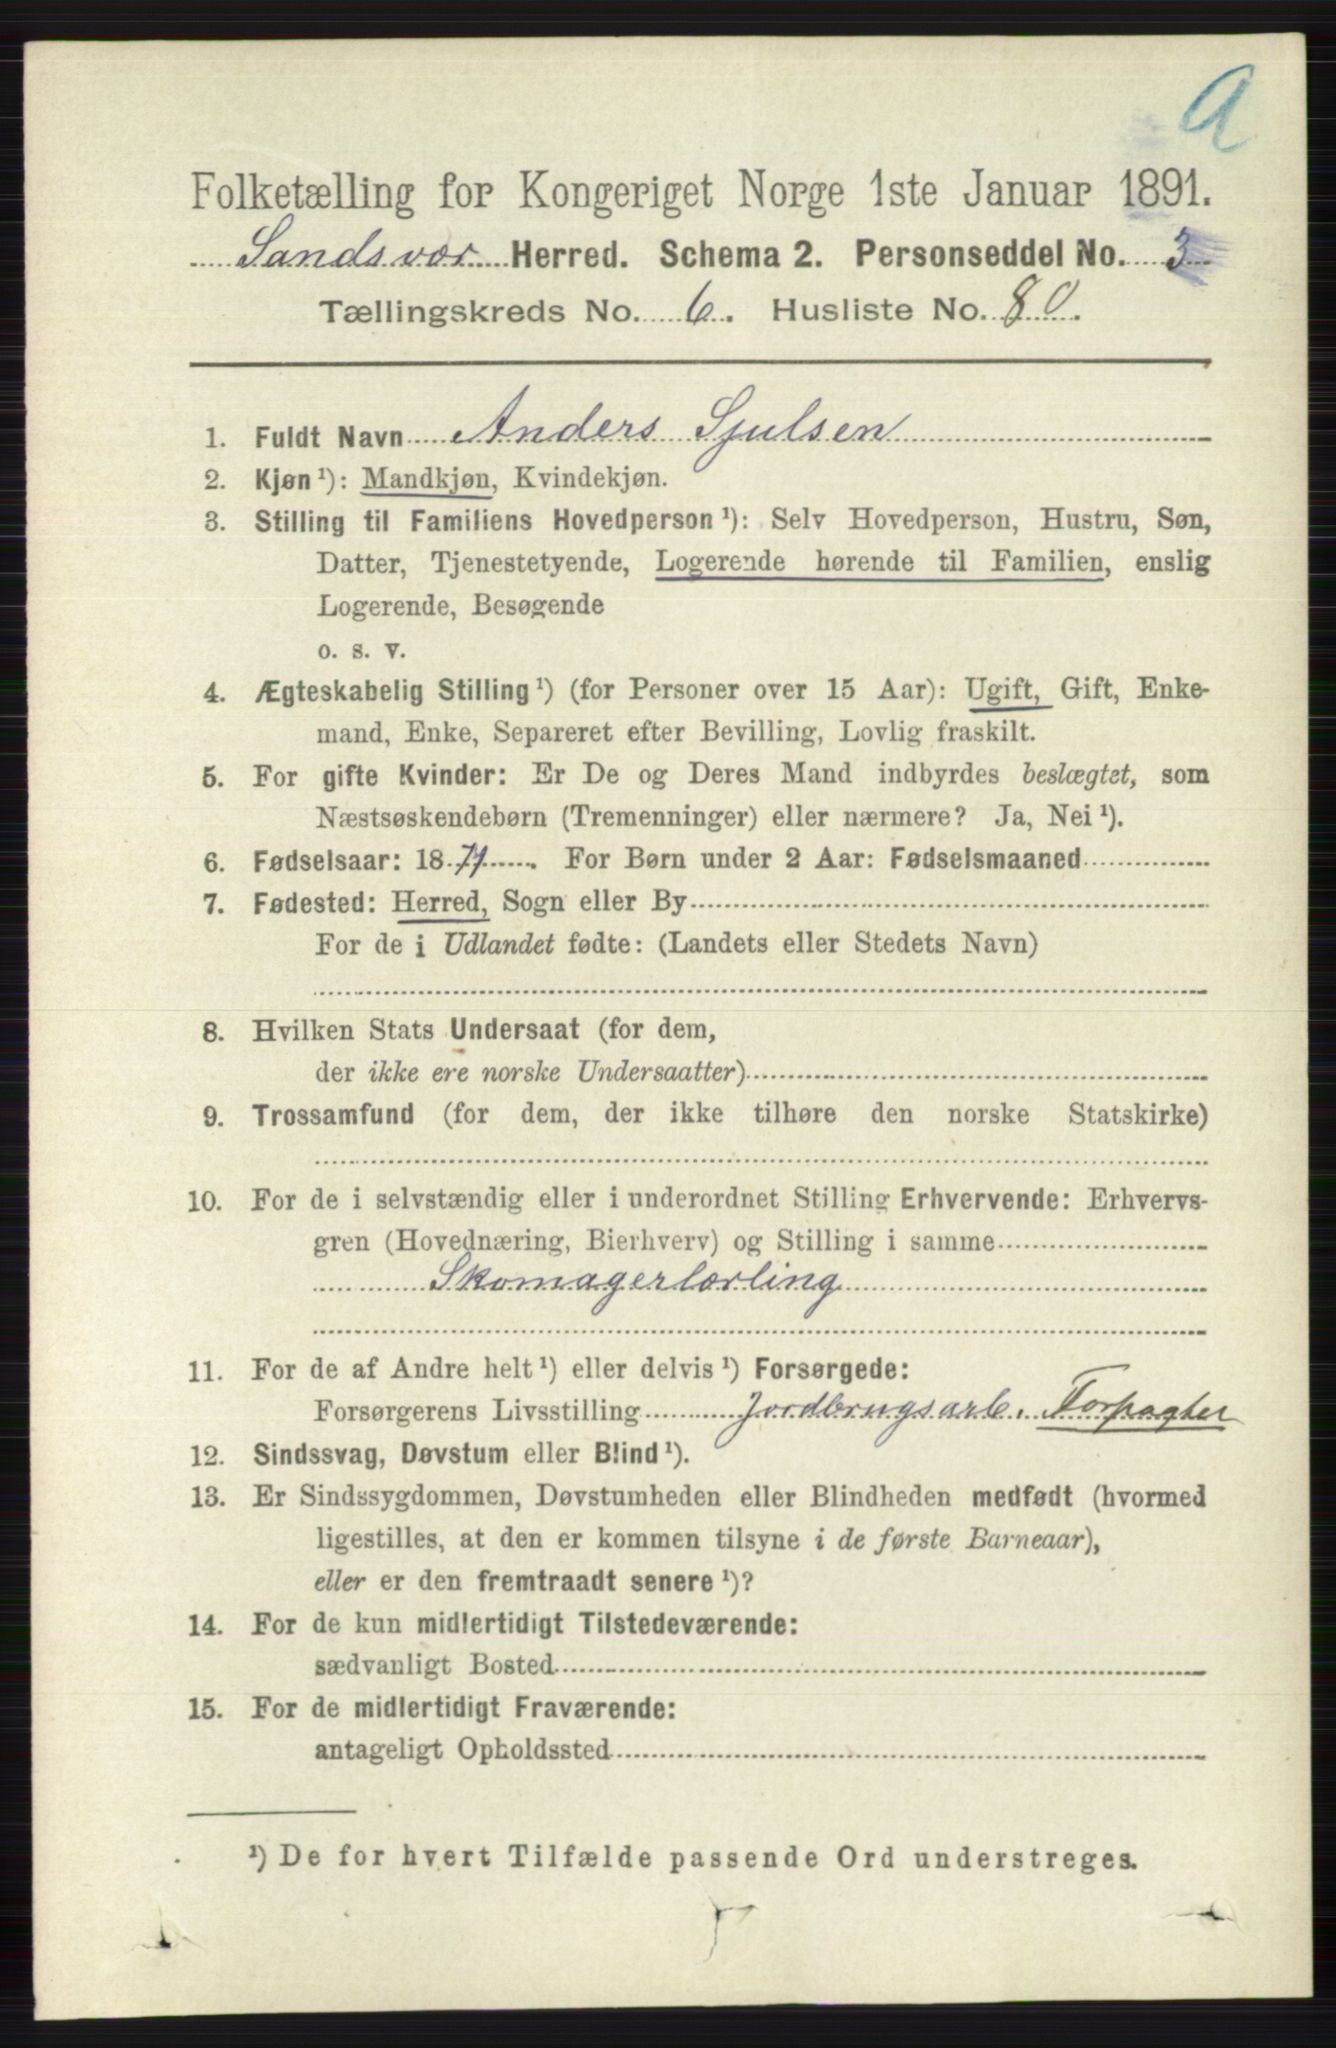 A
Folketælling for Kongeriget Norge 1ste Januar 1891.
Sandsvær Herred. Schema 2. Personseddel No. 3
Tællingskreds No. 6. Husliste No. 80.
1. Fuldt Navn Anders Sjulsen
2. Kjøn ¹): Mandkjøn, Kvindekjøn.
3. Stilling til Familiens Hovedperson ¹): Selv Hovedperson, Hustru, Søn,
Datter, Tjenestetyende, Logerende hørende til Familien, enslig
Logerende, Besøgende
o. s. v.
4. Ægteskabelig Stilling ¹) (for Personer over 15 Aar): Ugift, Gift, Enke-
mand, Enke, Separeret efter Bevilling, Lovlig fraskilt.
5. For gifte Kvinder: Er De og Deres Mand indbyrdes beslægtet, som
Næstsøskendebørn (Tremenninger) eller nærmere? Ja, Nei ¹).
6. Fødselsaar: 1871. For Børn under 2 Aar: Fødselsmaaned
7. Fødested: Herred, Sogn eller By
For de i Udlandet fødte: (Landets eller Stedets Navn)
8. Hvilken Stats Undersaat (for dem,
der ikke ere norske Undersaatter)
9. Trossamfund (for dem, der ikke tilhøre den norske Statskirke)
10. For de i selvstændig eller i underordnet Stilling Erhvervende: Erhvervs-
gren (Hovednæring, Bierhverv) og Stilling i samme
Skomagerlærling
11. For de af Andre helt ¹) eller delvis ¹) Forsørgede:
Forsørgerens Livsstilling Jordbrugsarb. Forpagter
12. Sindssvag, Døvstum eller Blind ¹).
13. Er Sindssygdommen, Døvstumheden eller Blindheden medfødt (hvormed
ligestilles, at den er kommen tilsyne i de første Barneaar),
eller er den fremtraadt senere ¹)?
14. For de kun midlertidigt Tilstedeværende:
sædvanligt Bosted
15. For de midlertidigt Fraværende:
antageligt Opholdssted
¹) De for hvert Tilfælde passende Ord understreges.